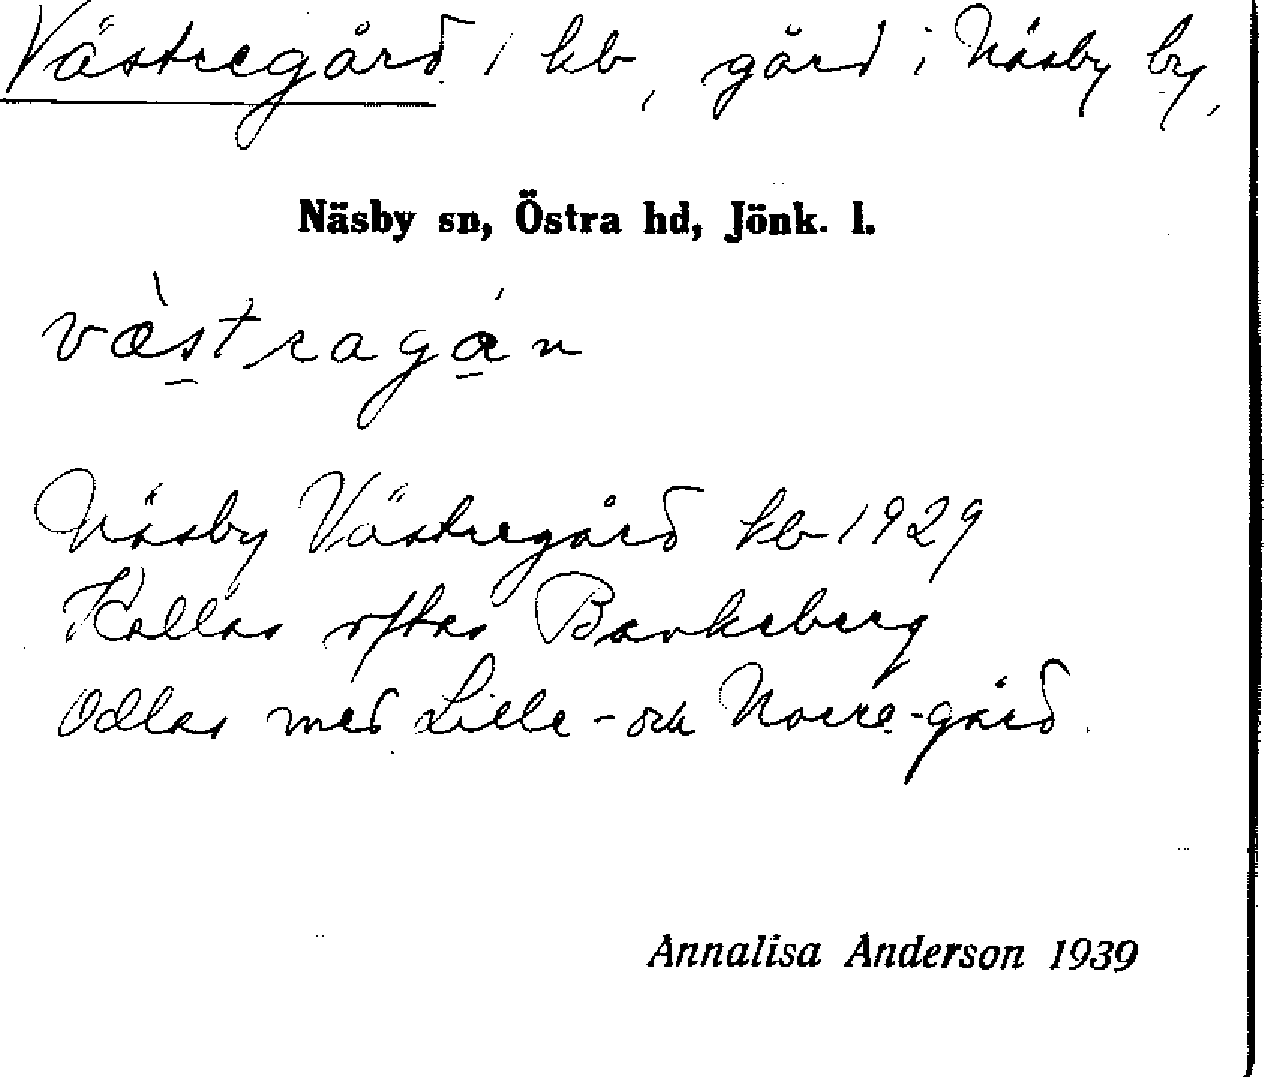 Västregård / kb, gård i Näsby by,
Näsby sn, Östra hd, Jönk. l.
væ̀stragán
Näsby Västregård kb 1929
Kallas oftas Bankeberg
Odlas med Lille- och Norre-gård.
Annalisa Anderson 1939